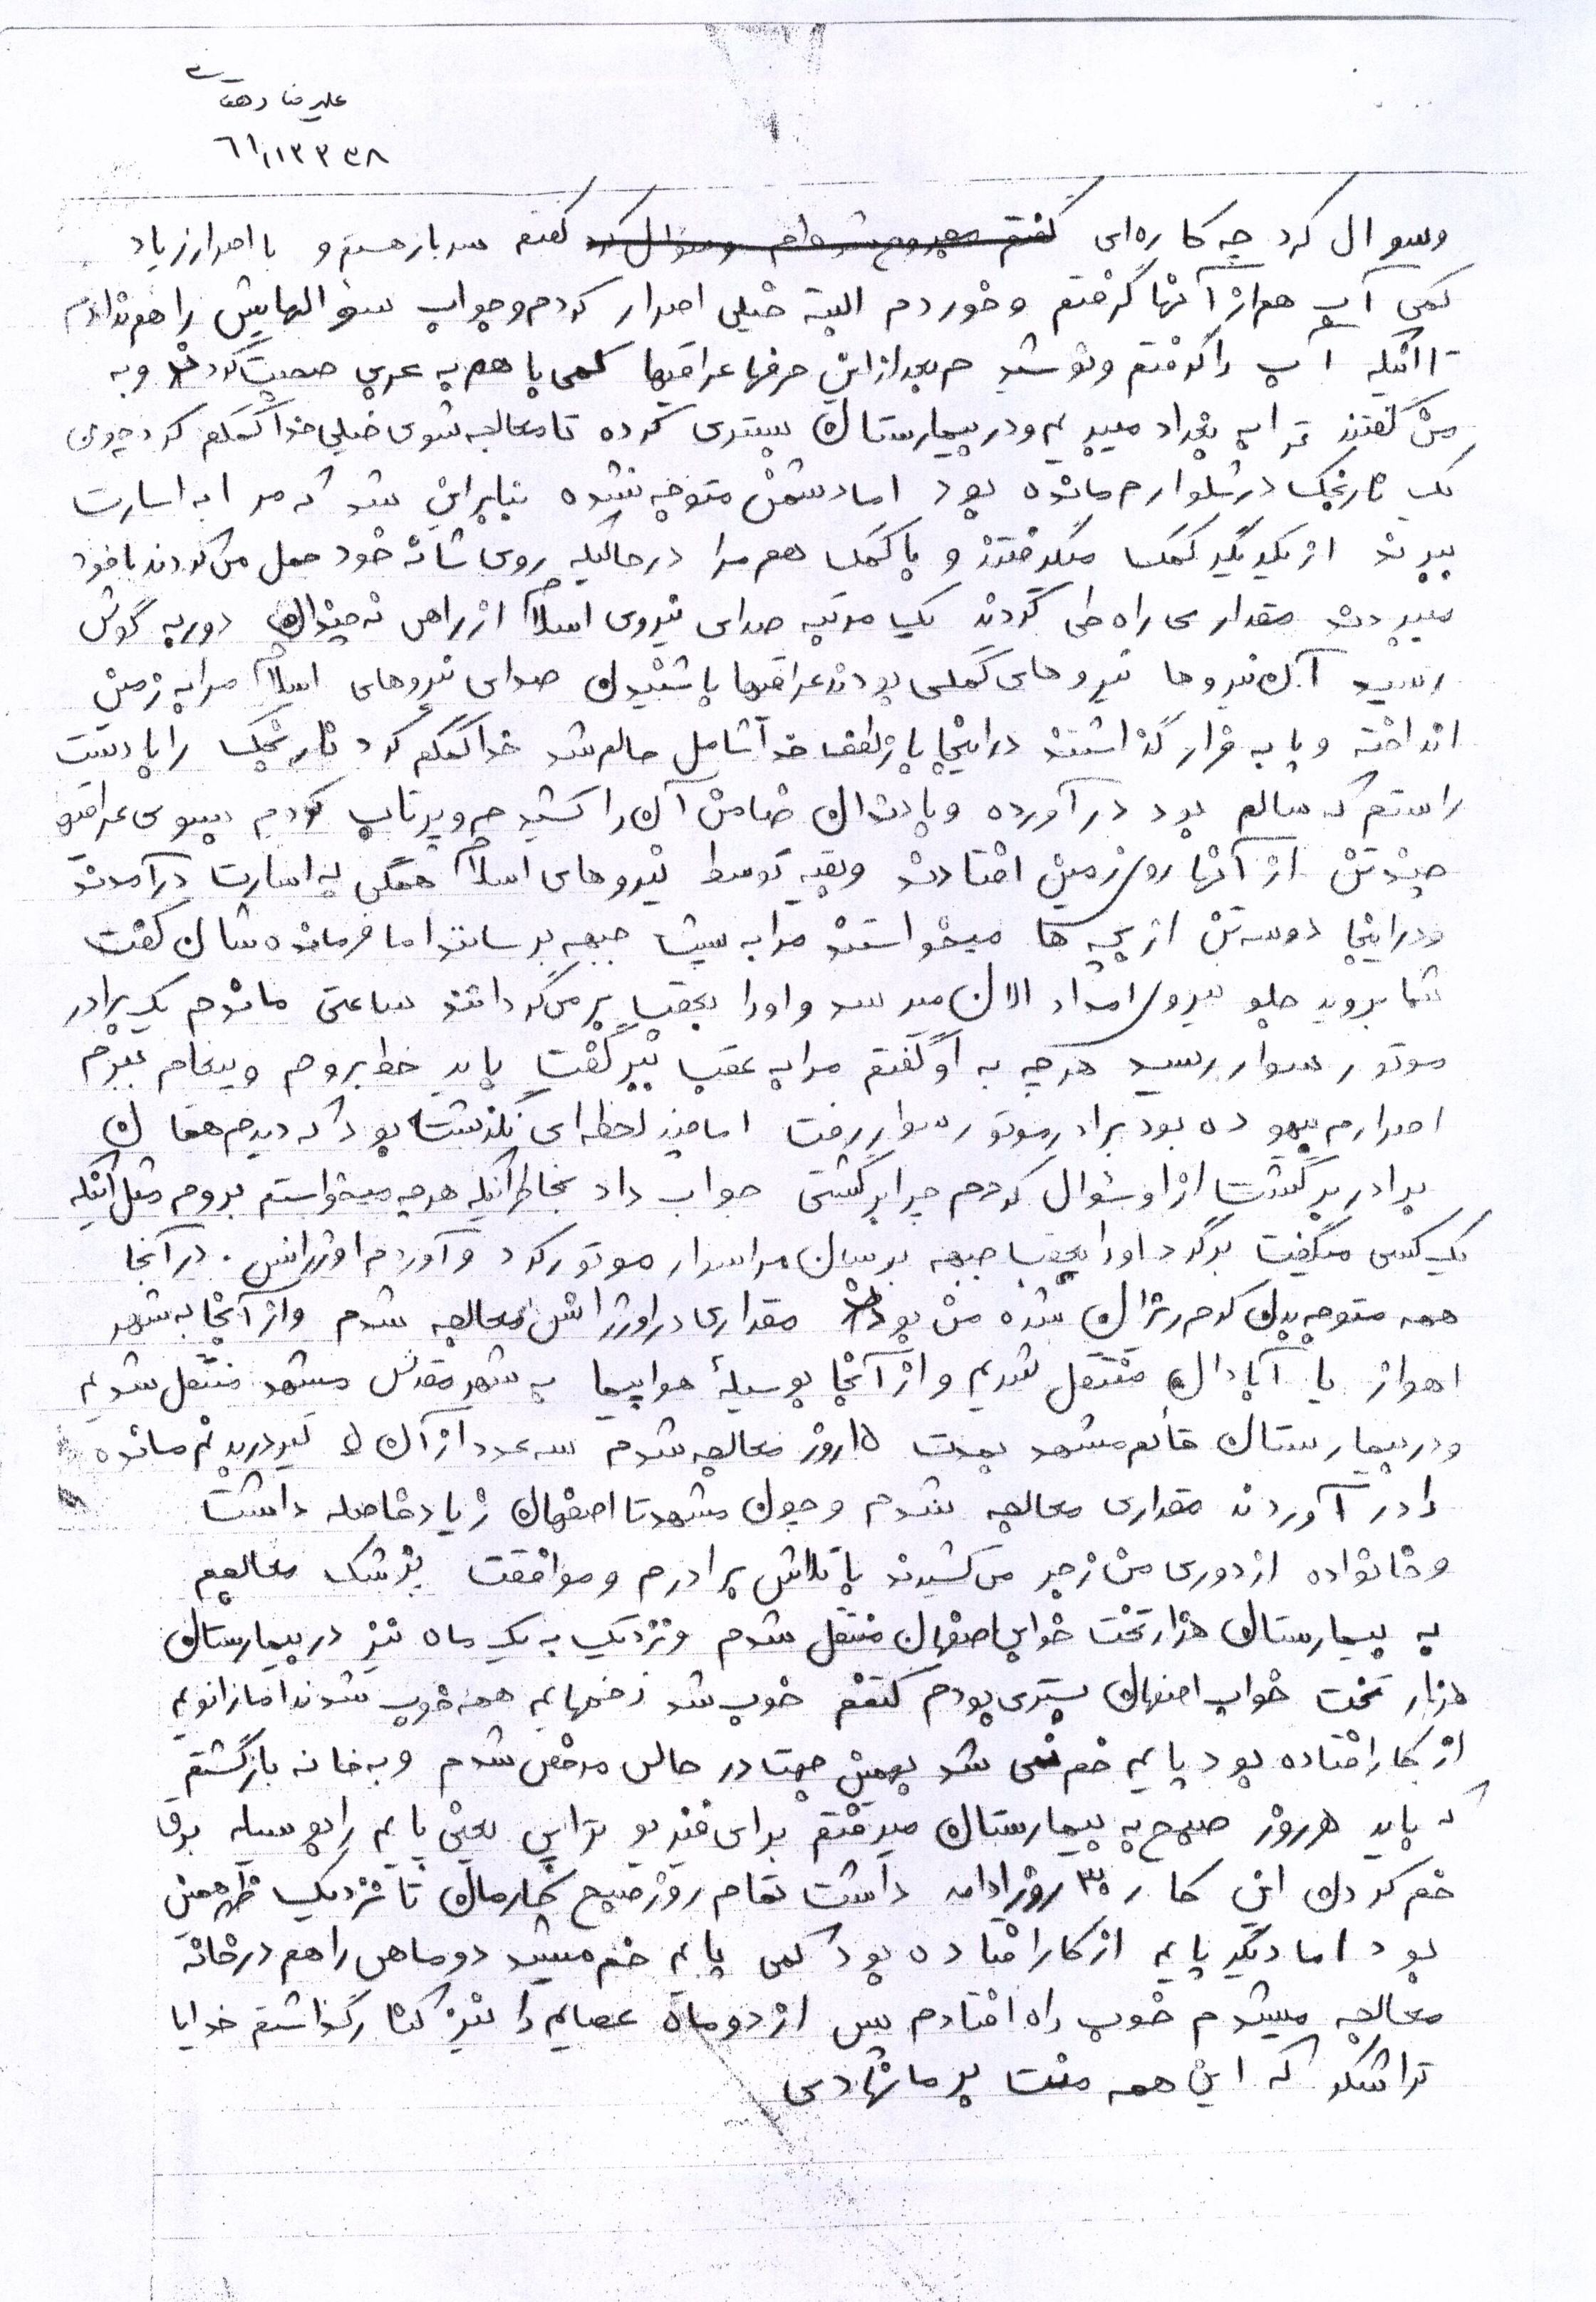 علیرضا دهقانی
۶۱/۱۲۳۳۸
وسوال کرد چه کاره‌ای گفتم مجروح شده‌ام و سئوال کرد گفتم سرباز هستم و با اصرار زیاد
کمی آب هم از آنها گرفتم و خوردم البته خیلی اصرار کردم و جواب سئوالهایش را هم ندادم
تا اینکه آب را گرفتم و نوشیدم بعد از این حرفها عراقیها کمی با هم به عربی صحبت کردند و به
من گفتند ترا به بغداد میبریم و در بیمارستان بستری کرده تا معالجه شوی خیلی خدا کمکم کرد چون
یک نارنجک در شلوارم مانده بود اما دشمن متوجه نشده بنابراین شد که مرا به اسارت
ببرند از یکدیگر کمک میگرفتند و با کمک هم مرا در حالیکه روی شانه خود حمل می کردند با خود
میبردند مقداری راه طی کردند یک مرتبه صدای نیروی اسلام از راهی نه چندان دور به گوش
رسید آن نیروها نیروهای کمکی بودند عراقیها با شنیدن صدای نیروهای اسلام مرا به زمین
انداخته و پا به فرار گذاشتند در اینجا باز لطف خدا شامل حالم شد خدا کمکم کرد نارنجک را با دست
راستم که سالم بود در آورده و با دندان ضامن آن را کشیدم و پرتاب کردم بسوی عراقیها
چند تن از آنها روی زمین افتادند و بقیه توسط نیروهای اسلام همگی به اسارت در آمدند
ودر اینجا دو سه تن از بچه ها میخواستند مرا به پشت جبهه برسانند اما فرمانده شان گفت
شما بروید جلو نیروی امداد الان میرسد و او را بعقب بر می گردانند ساعتی ماندم یک برادر
موتور سوار رسید هر چه به او گفتم مرا به عقب ببر گفت باید خط بروم و پیغام ببرم
اصرارم بیهوده بود برادر موتور سوار رفت اما چند لحظه ای نگذشته بود که دیدم همان
برادر برگشت از او سئوال کردم چرا برگشتی جواب داد بخاطر اینکه هر چه میخواستم بروم مثل اینکه
یک کسی میگفت برگرد او را بعقب جبهه برسان مرا سوار موتور کرد و آوردم اورژانس. در آنجا
همه متوجه بدن کرم ریزان شده من بودند مقداری در اورژانس معالجه شدم و از آنجا به شهر
اهواز یا آبادان منتقل شدیم و از آنجا بوسیلهٔ هواپیما به شهر مقدس مشهد منتقل شدیم
ودر بیمارستان قائم مشهد بمدت ۱۵ روز معالجه شدم سه عدد از آن ۵ تیر در بدنم مانده
را در آوردند مقداری معالجه شدم و چون مشهد تا اصفهان زیاد فاصله داشت
وخانواده از دوری من زجر می کشیدند با تلاش برادرم و موافقت پزشک معالجم
به بیمارستان هزار تخت خوابی اصفهان منتقل شدم و نزدیک به یک ماه نیز در بیمارستان
هزار تخت خواب اصفهان بستری بودم کتفم خوب شد زخمهایم همه خوب شدند اما زانویم
از کار افتاده بود پایم خم نمی شد بهمین جهت در حالی مرخص شدم و به خانه بازگشتم
که باید هر روز صبح به بیمارستان میرفتم برای فیزیو تراپی یعنی پایم را بوسیله برق
خم کردن این کار ۳۰ روز ادامه داشت تمام روز صبح کارمان تا نزدیک ظهر همین
بود اما دیگر پایم از کار افتاده بود کمی پایم خم میشد دو ماهی را هم در خانه
معالجه میشدم خوب راه افتادم پس از دو ماه عصایم را نیز کنار گذاشتم خدایا
ترا شکر که این همه منت بر ما نهادی